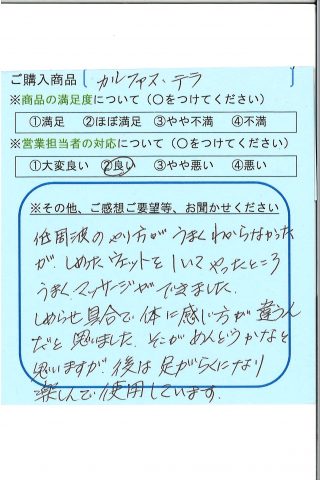 ご購入商品 〔 カルファス・テラ 〕
※商品の満足度について（〇をつけてください）
①満足 ②ほぼ満足 ③やや不満 ④不満
※営業担当者の対応について（〇をつけてください）
①大変良い ②良い ③やや悪い ④悪い
※その他、ご感想ご要望等、お聞かせください
低周波のやり方がうまくわからなかった
が、しめたウェットを1いてやったところ
うまくマッサージができました。
しめらせ具合で体に感じ方が違うん
だと思いました。そこがめんどうかなと
思いますが、後は足がらくになり
楽しんで使用しています。